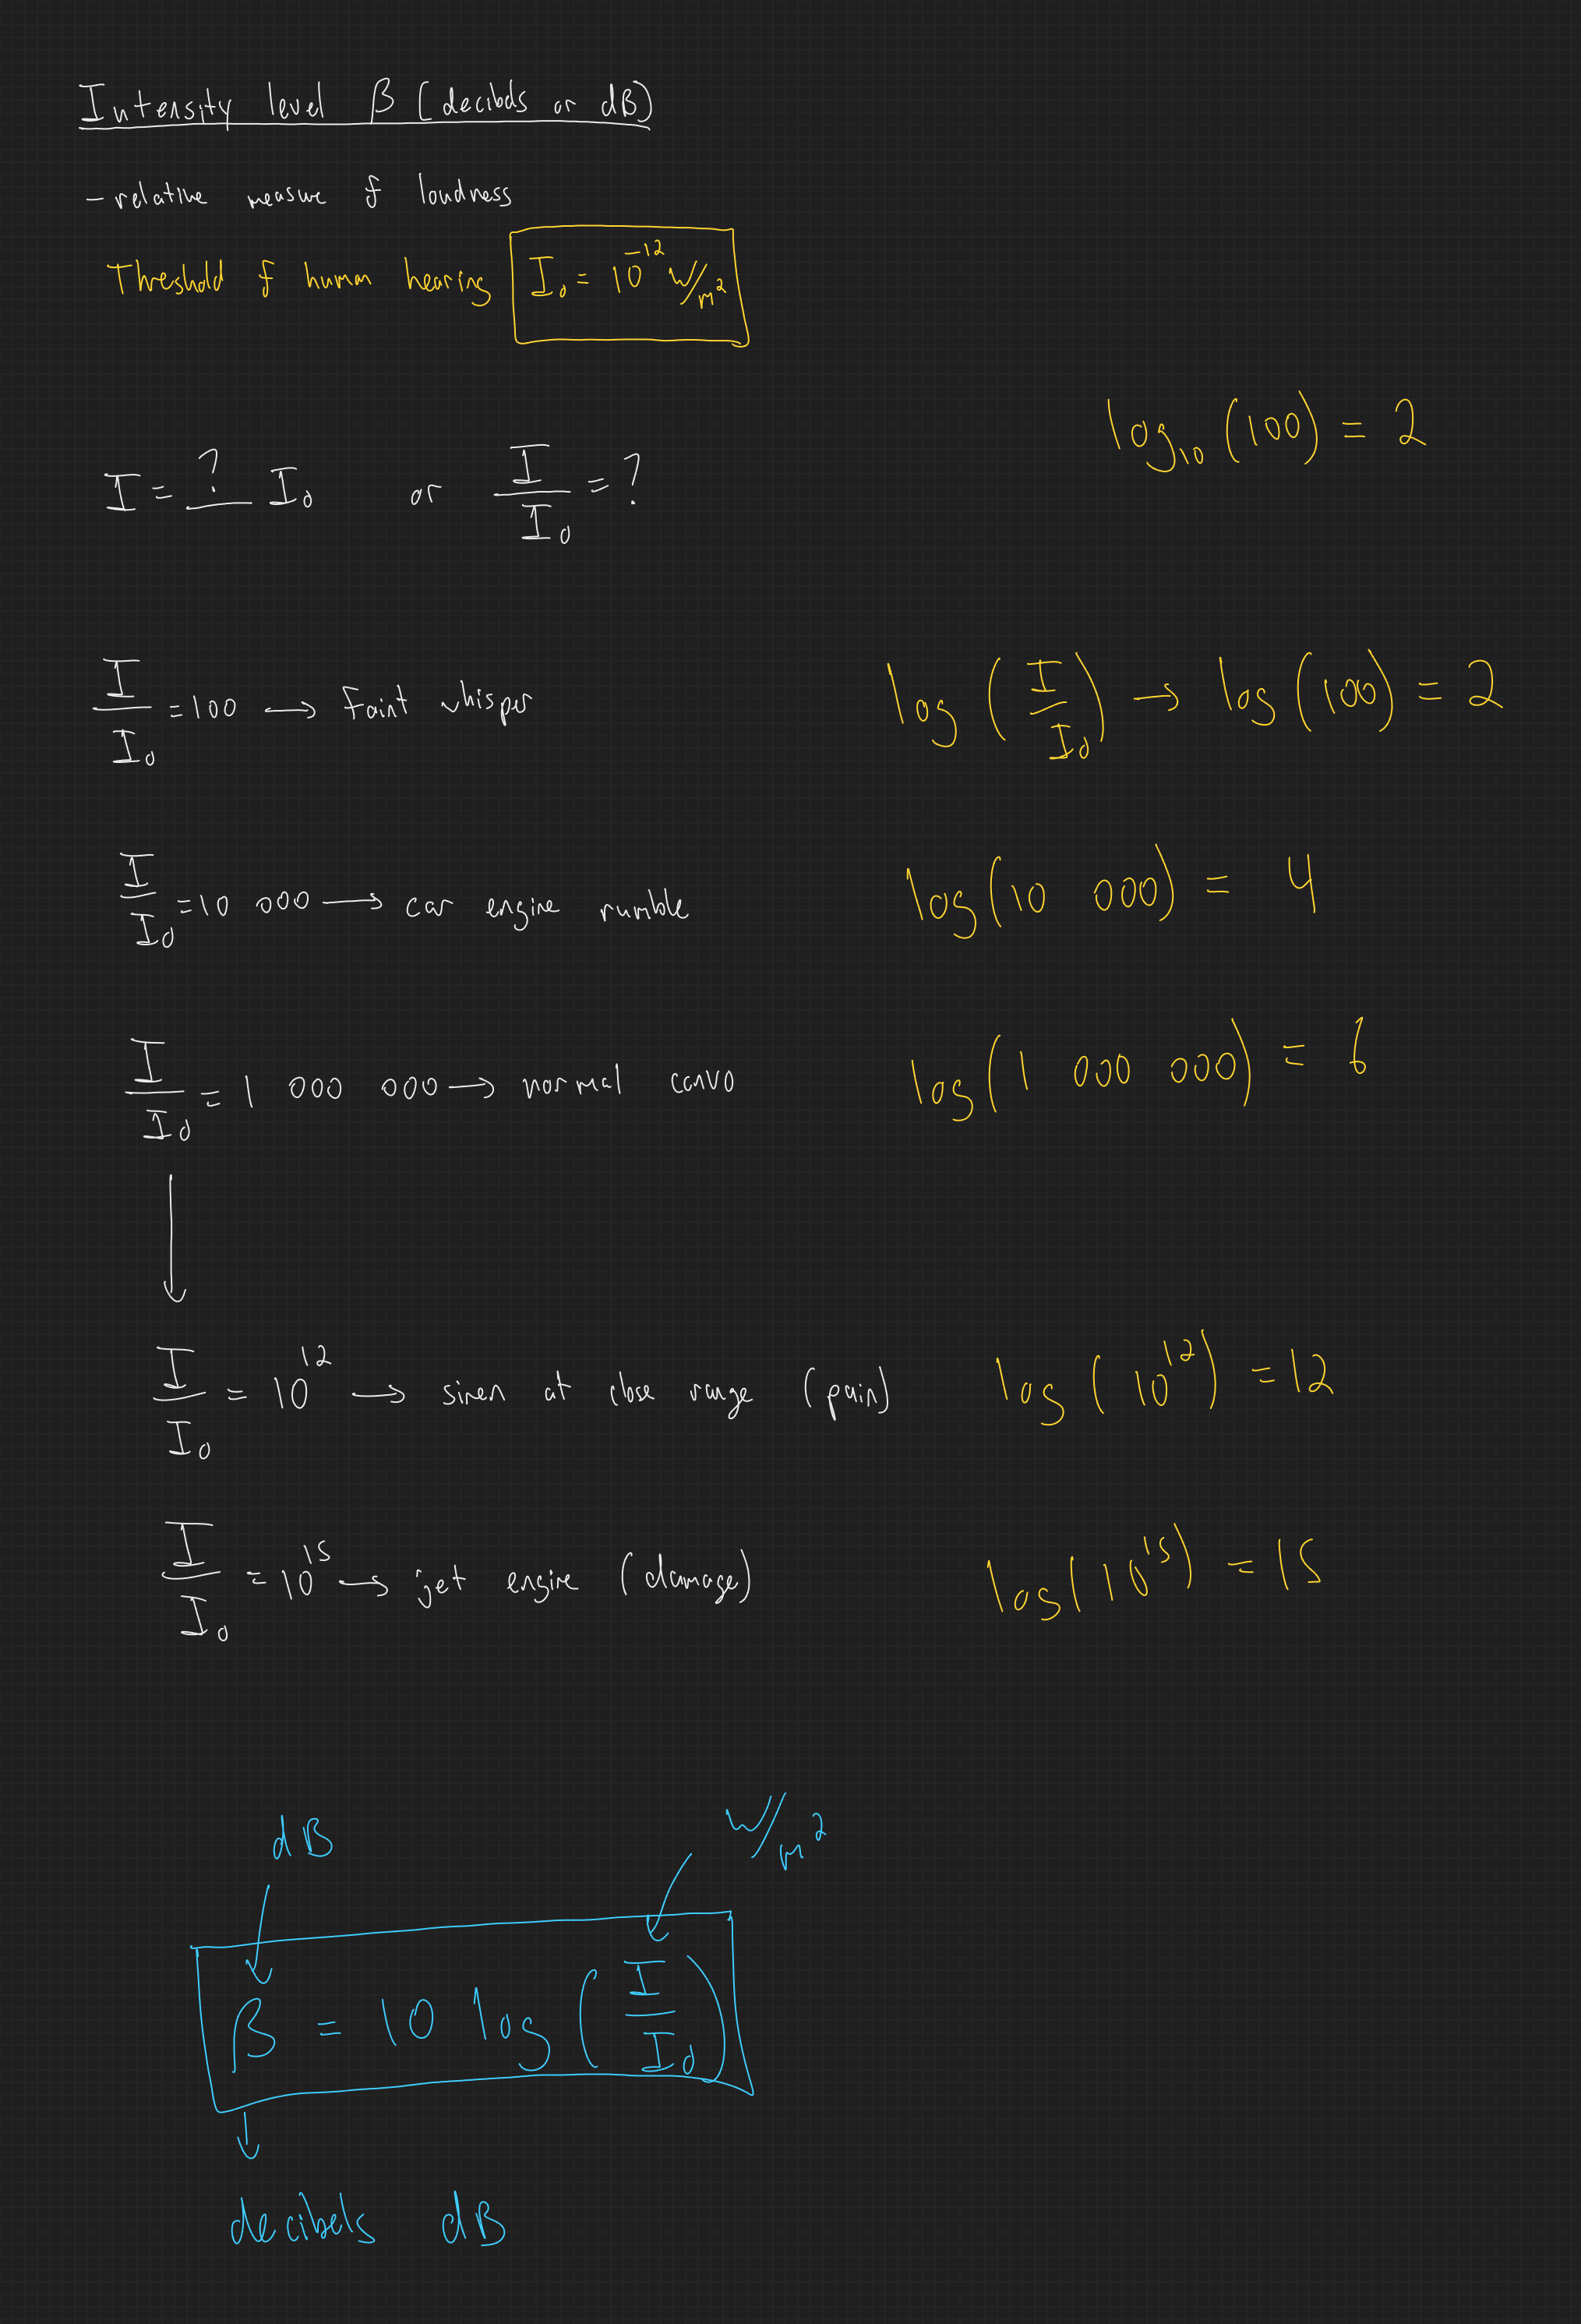 Intensity level β (decibels or dB)
- relative measure of loudness
Threshold of human hearing I₀ = 10⁻¹² W/m²
log₁₀(100) = 2
I = ? I₀ or I/I₀ = ?
I/I₀ = 100 → faint whisper log(I/I₀) → log(100) = 2
I/I₀ = 10 000 → car engine rumble log(10 000) = 4
I/I₀ = 1 000 000 → normal convo log(1 000 000) = 6
↓
I/I₀ = 10¹² → siren at close range (pain) log(10¹²) = 12
I/I₀ = 10¹⁵ → jet engine (damage) log(10¹⁵) = 15
dB W/m²
β = 10 log(I/I₀)
decibels dB